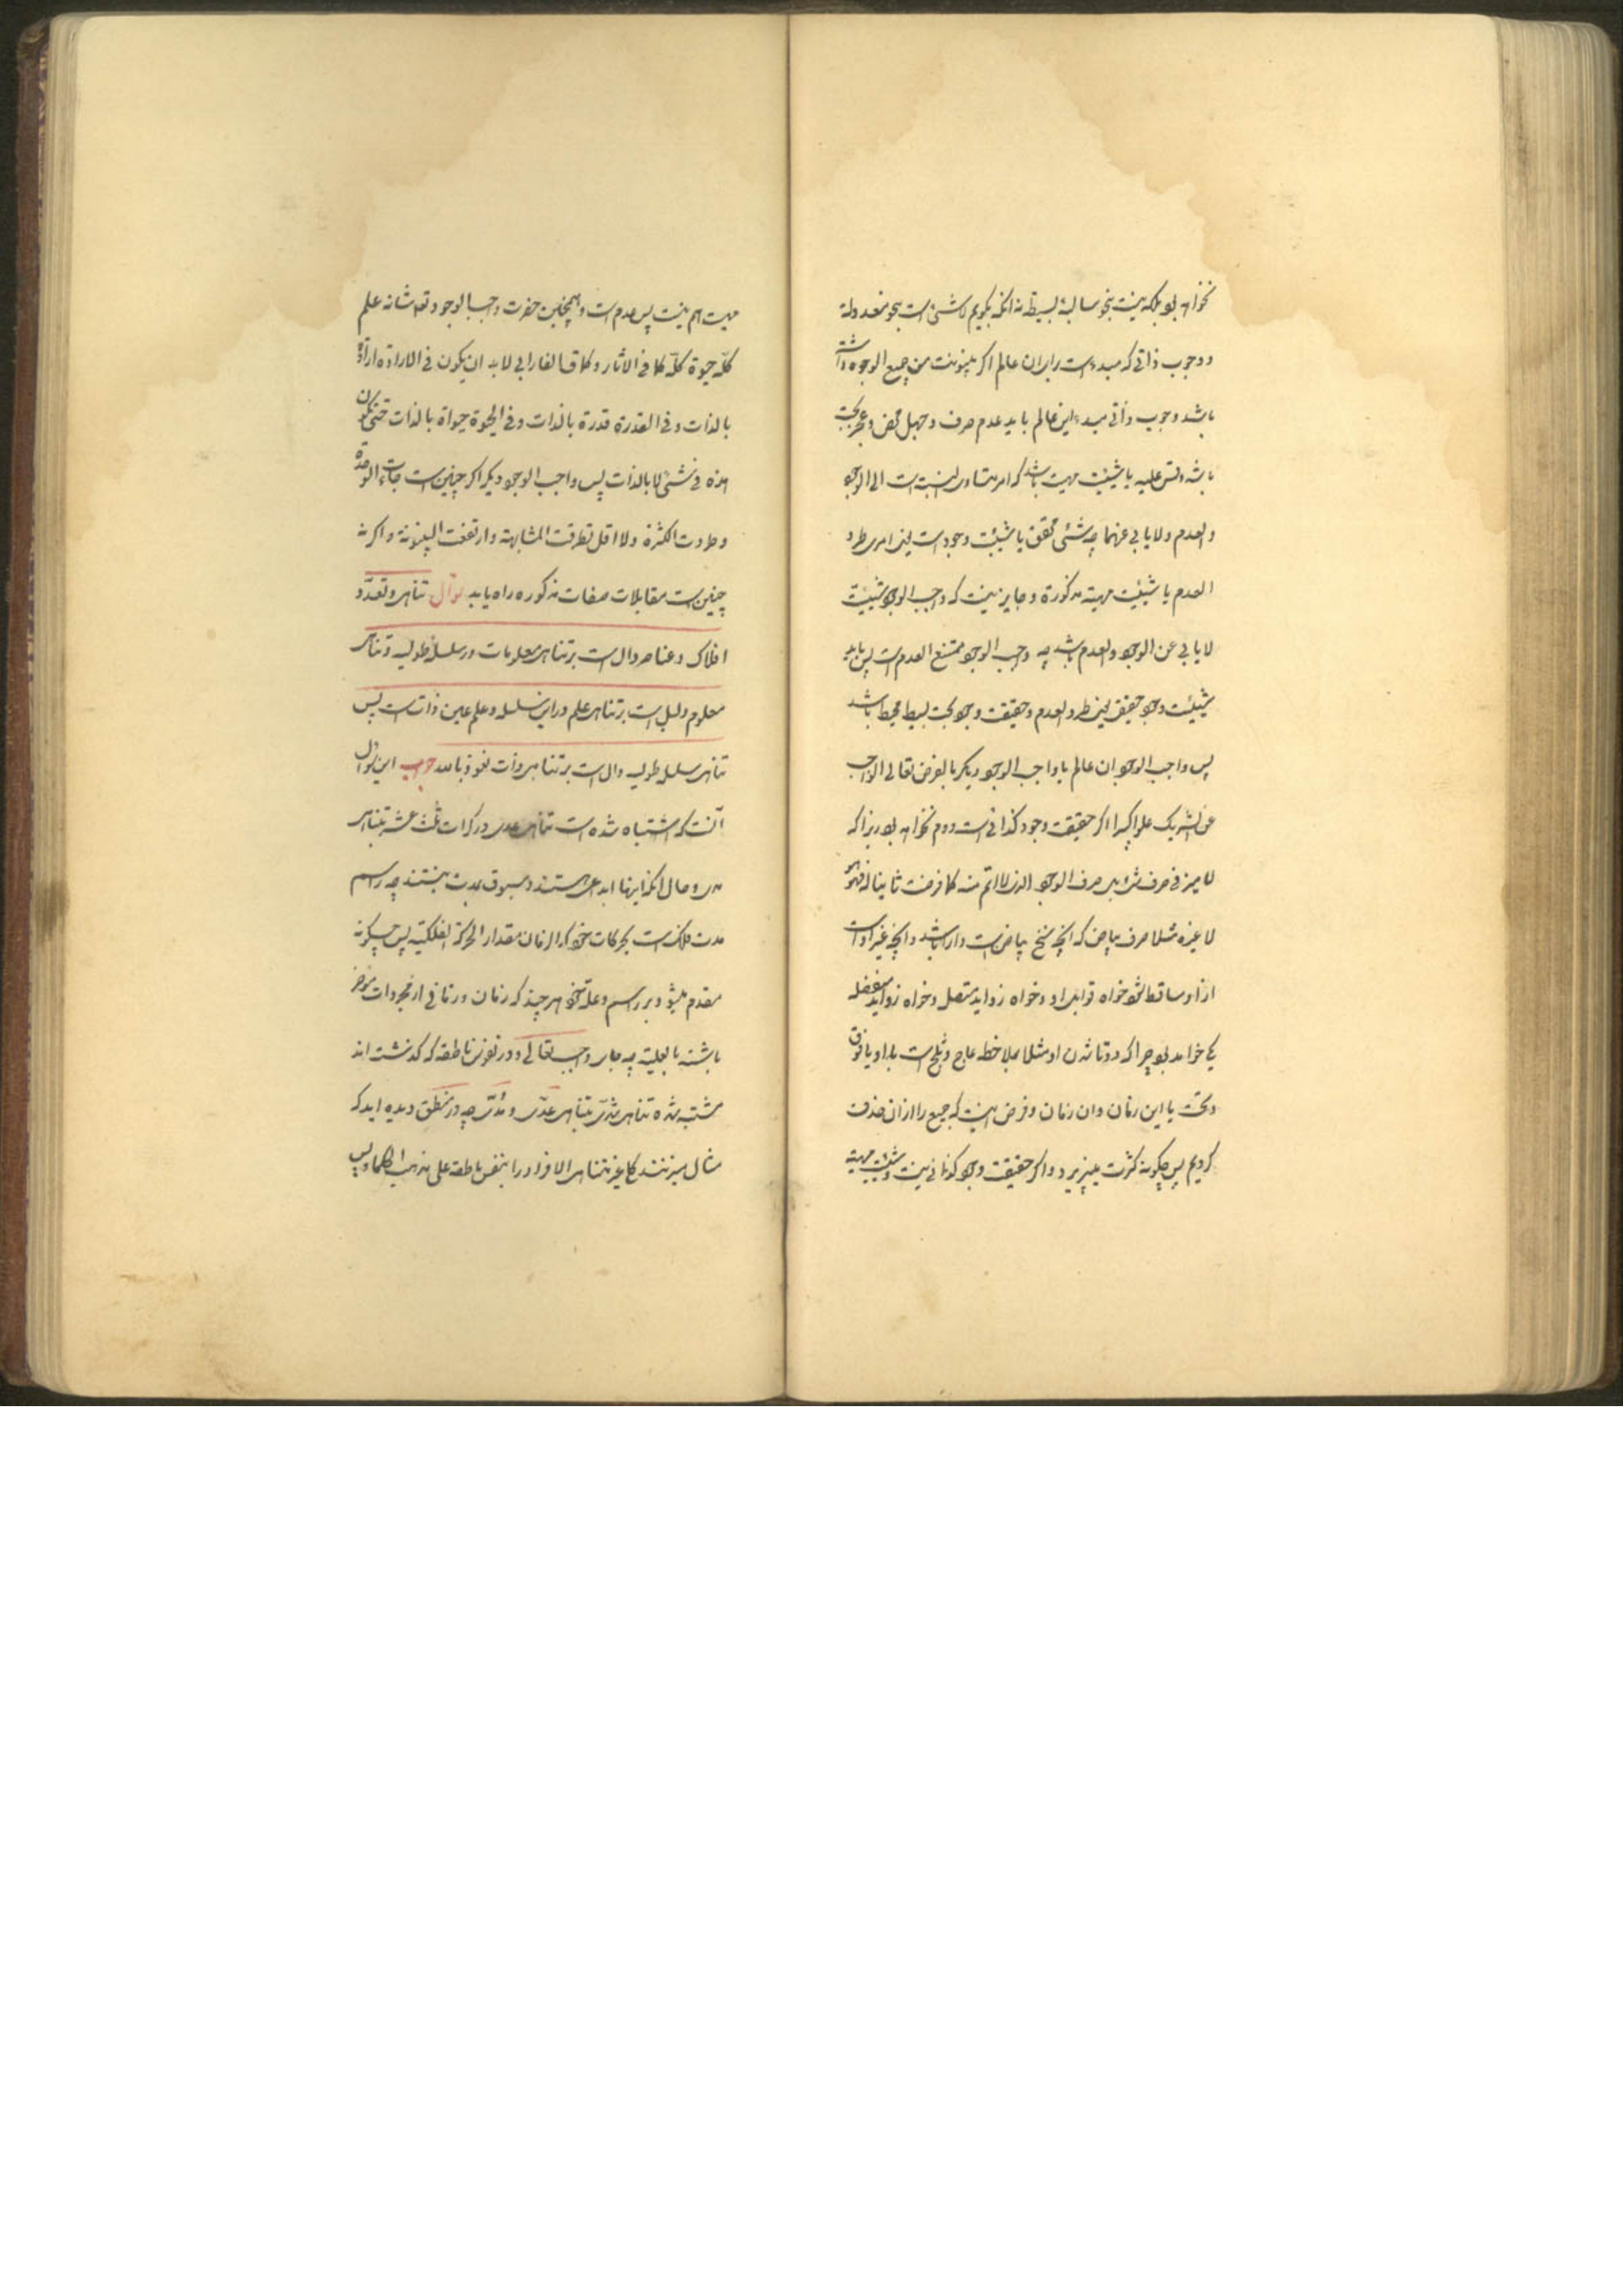 نخواهد بود بلکه نیست بنحو سالبهٔ بسیطه نه انکه بکویم لاشئ است بنحو معدوله
و وجوب ذاتی که مبدء است برای ان عالم اکر بینونت من جمیع الوجوه داشته
باشد وجوب ذاتی مبدء این عالم باید عدم صرف و جهل محض و عجز بحت
باشد وقس علیه یا شیئیت مهیت باشد که امر متساوی النسبت است الی الوجود
والعدم ولا یابی عنهما چه شئی محقق یا شیئیت وجود است یعنی امری طرد
العدم یا شیئیت مهیته مذکورة و جایز نیست که واجب الوجود شیئیت
لا یابی عن الوجود والعدم باشد چه واجب الوجود ممتنع العدم است پس باید
شیئیت وجود حقیقی یعنی طرد العدم و حقیقت وجود بحت بسیط محیط باشد
پس واجب الوجود ان عالم با واجب الوجود دیکر بالفرض تعالی الواجب
عن الشریک علوا کبیرا اکر حقیقت وجود کذائی است دوم نخواهد بود زیرا که
لا میز فی صرف شئ پس صرف الوجود الذی لا اتم منه کلما فرضت ثانیا له فهو هو
لا غیره مثلا صرف بیاض که انچه سنخ بیاض است دارا باشد و انچه غیر او است
از او ساقط شود خواه قوابل او و خواه زواید متصل و خواه زواید منفصله
یکی خواهد بود چرا که دوتا شدن او مثلا بملاحظه عاج و ثلج است یا او یا فوق
و تحت یا این زمان وان زمان و فرض اینست که جمیع را از ان حذف
کردیم پس چکونه کثرت میپذیرد و اکر حقیقت وجود کذائی نیست و شیئیت مهیته
مهیت هم نیست پس عدم است و همچنین حضرت واجب الوجود تعه شانه علم
کله حیوة کله کما فی الاثار و کما قال الفارابی لا بد ان یکون فی الارادة ارادة
بالذات و فی القدرة قدرة بالذات و فی الحیوة حیواة بالذات حتی تکون
هذه فی شئ لا بالذات پس واجب الوجود دیکر اکر چنین است جاءت الوحدة
و طردت الکثرة ولا اقل تطرقت المشابهة و ارتفعت البینونة و اکر نه
چنین است مقابلات صفات مذکوره راه یابد سوال تناهی و تعدد
افلاک و عناصر دال است بر تناهی معلومات در سلسلهٔ طولیه و تناهی
معلوم دلیل است بر تناهی علم در این سلسله و علم عین ذات است پس
تناهی سلسله طولیه دال است بر تناهی ذات نعوذ بالله جواب این سوال
آنست که اشتباه شده است تناهی عددی در کرات ثلث عشر بتناهی
مدی و حال انکه اینها ابداعی هستند و مسبوق بمدت نیستند چه راسم
مدت فلک است بحرکات خود که الزمان مقدار الحرکة الفلکیة پس چکونه
مقدم میشود بر راسم و علت خود هر چند که زمان و زمانی از مجردات موخر
باشند بالعلیة چه جای واجب تعالی و در نفوس ناطقه که کذشته اند
مشتبه شده تناهی شدی بتناهی عدی و مدی چه در منطق دیده اید که
مثال میزنند کلی غیر متناهی الافراد را بنفس ناطقه علی مذهب الحکماء پس